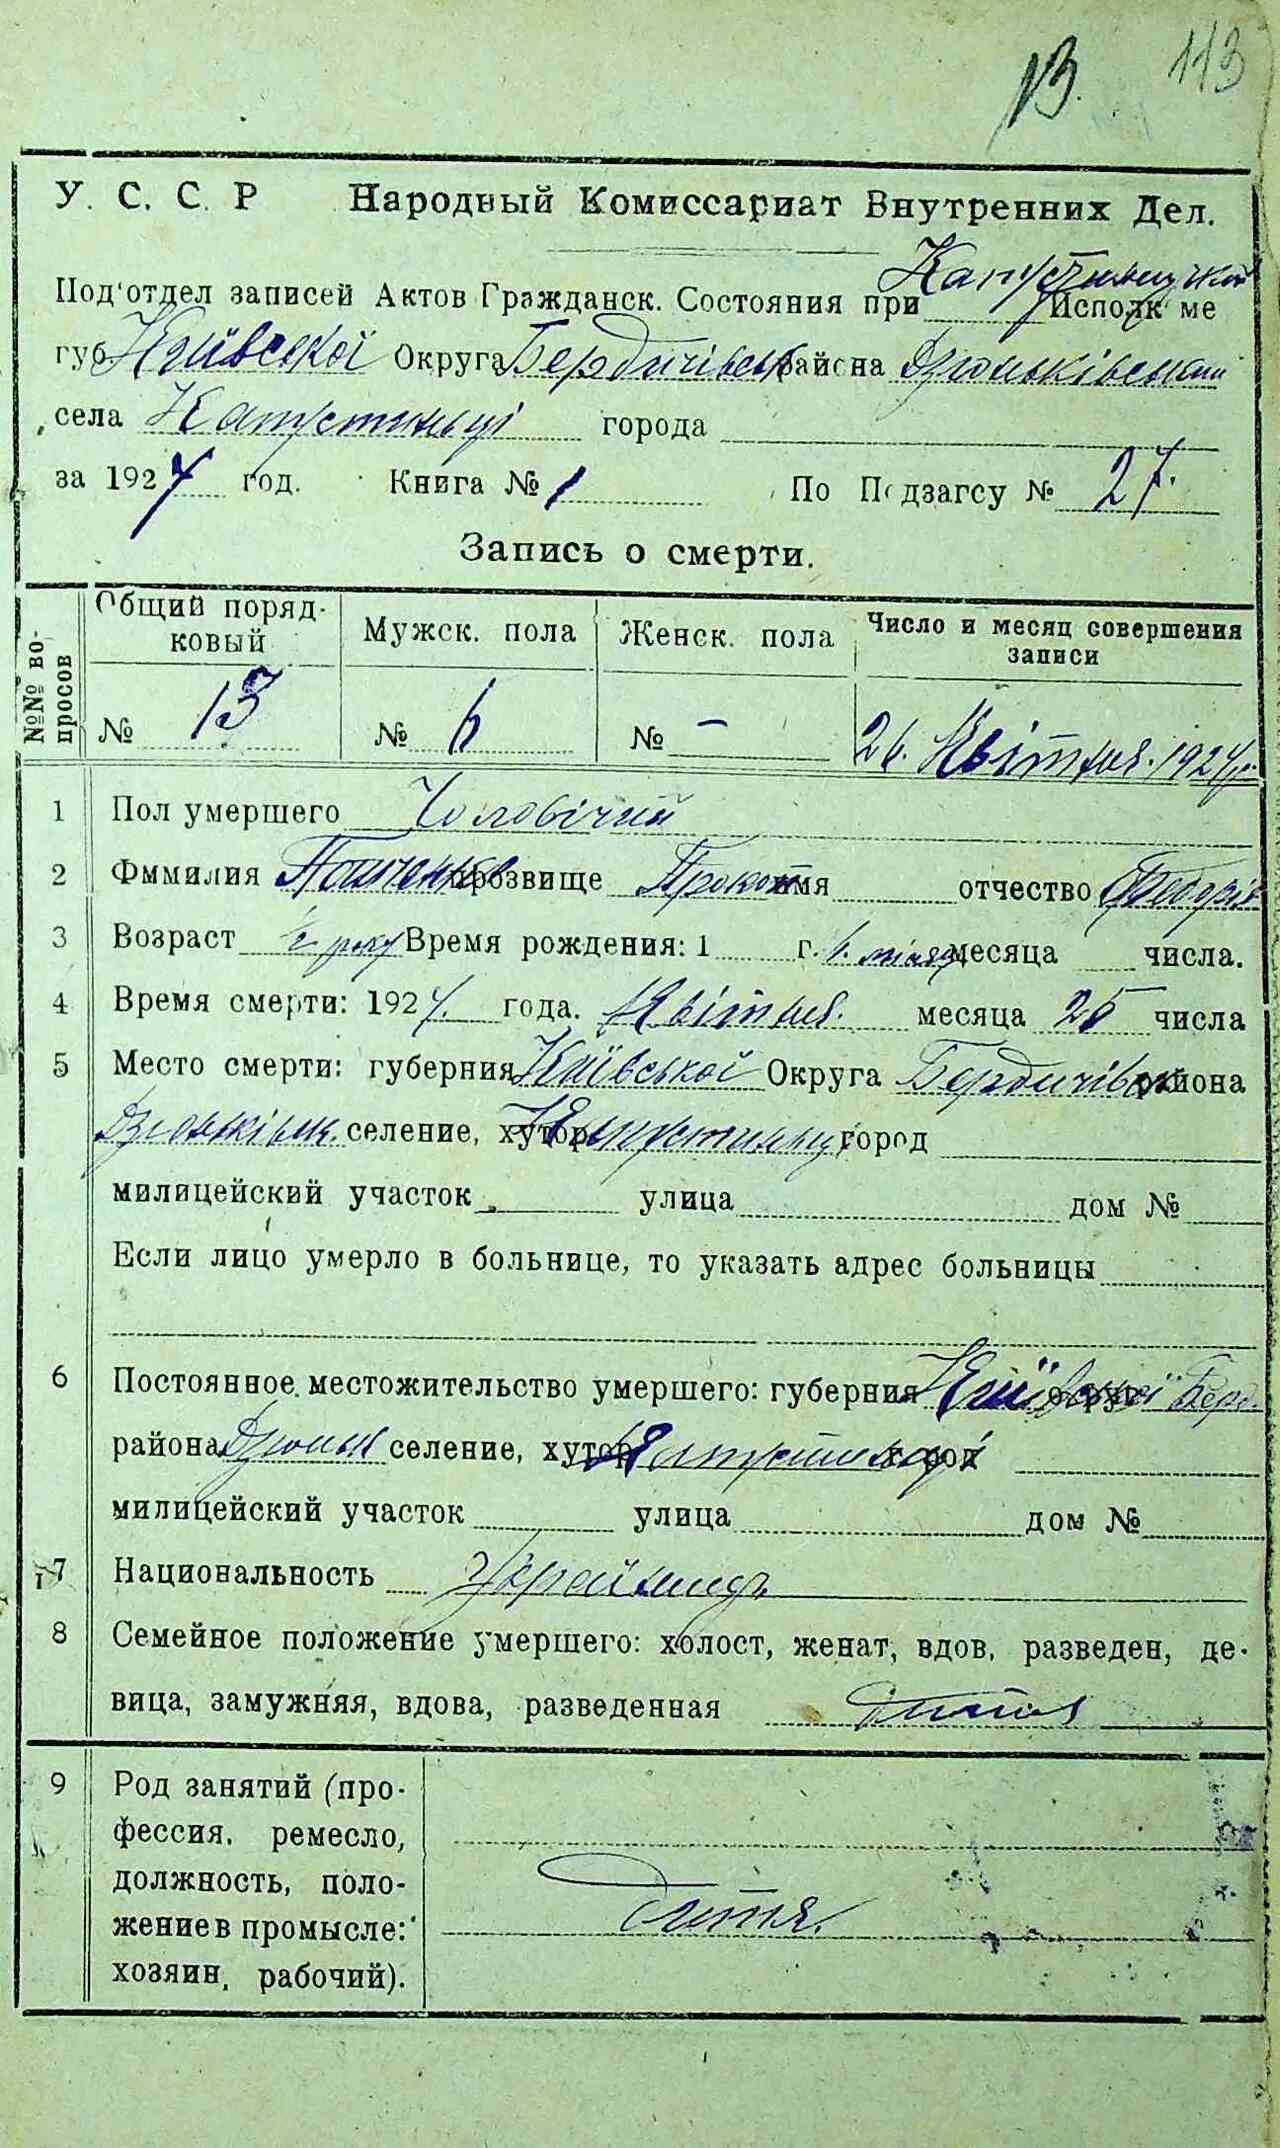 13. 113
У. С. С. Р Народный Комиссариат Внутренних Дел.
Под'отдел записей Актов Гражданск. Состояния при Исполк ме
губ Київської Округа Бердичівськ района Дзюньківський
села Капустинці города
за 1924 год. Книга № 1 По П дзагсу № 27.
Запись о смерти.
№№ вопросов
Общий поряд-
ковый
Мужск. пола Женск. пола Число и месяц совершения
записи
№ 13 № 6 № – 26. Квітня. 1924
1 Пол умершего Чоловічий
2 Фммилия прозвище Прокоп имя отчество
3 Возраст року Время рождения: 1 г. 6. місяц месяца числа.
4 Время смерти: 1924. года. Квітня. месяца 25 числа
5 Место смерти: губерния Київської Округа Бердичівськ района
Дзюньківськ. селение, хутор Капустинці город
милицейский участок улица дом №
Если лицо умерло в больнице, то указать адрес больницы
6 Постоянное местожительство умершего: губерния Київської округ Берд.
района Дзюньк селение, хутор Капустинці город
милицейский участок улица дом №
7 Национальность Українець
8 Семейное положение умершего: холост, женат, вдов, разведен, де-
вица, замужняя, вдова, разведенная дитя
9 Род занятий (про-
фессия, ремесло,
должность, поло-
жение в промысле:
хозяин, рабочий).
дитя.